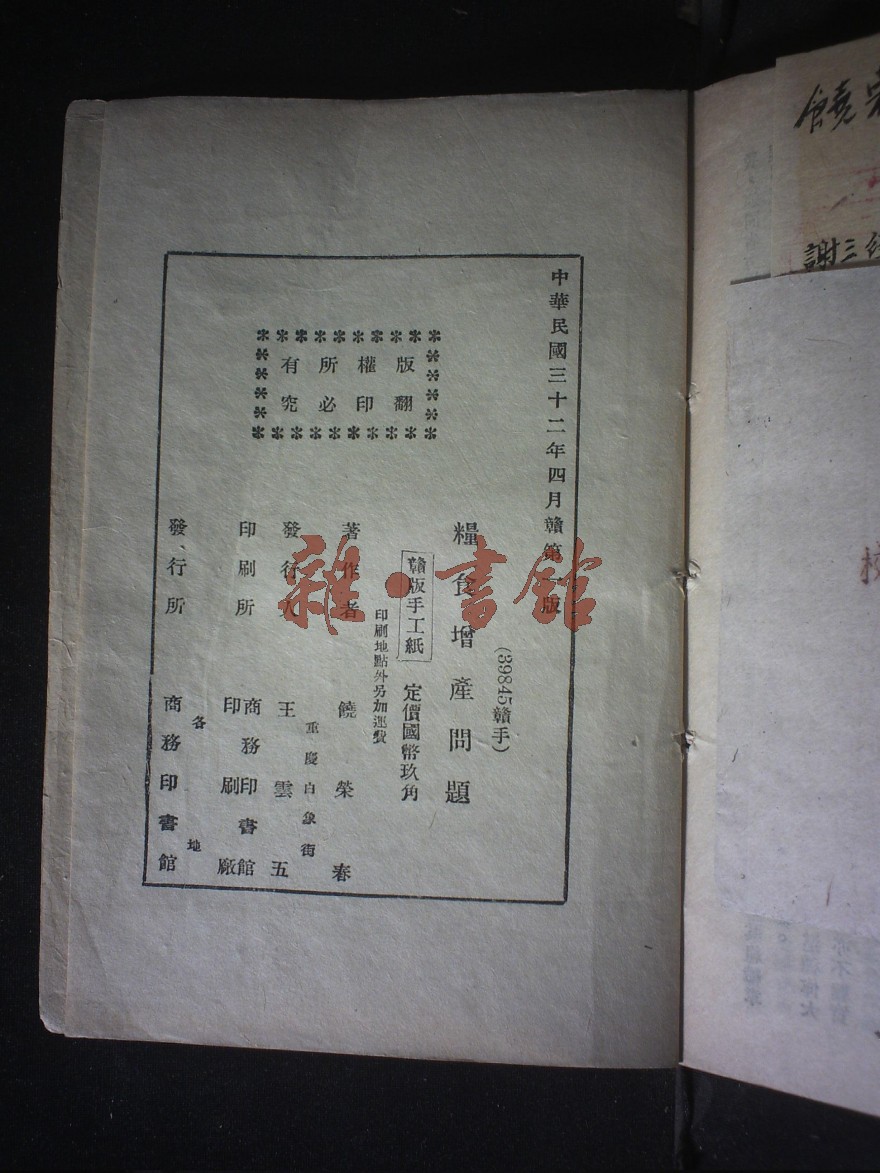 中華民國三十二年四月贛第一版
版權所有
翻印必究
(39845贛手)
糧食增產問題
贛版手工紙
定價國幣玖角
印刷地點外另加運費
著作者 饒榮春
重慶白象街
發行人 王雲五
印刷所 商務印書館
印刷廠
發行所 各地
商務印書館
雜·書館
饒
謝三